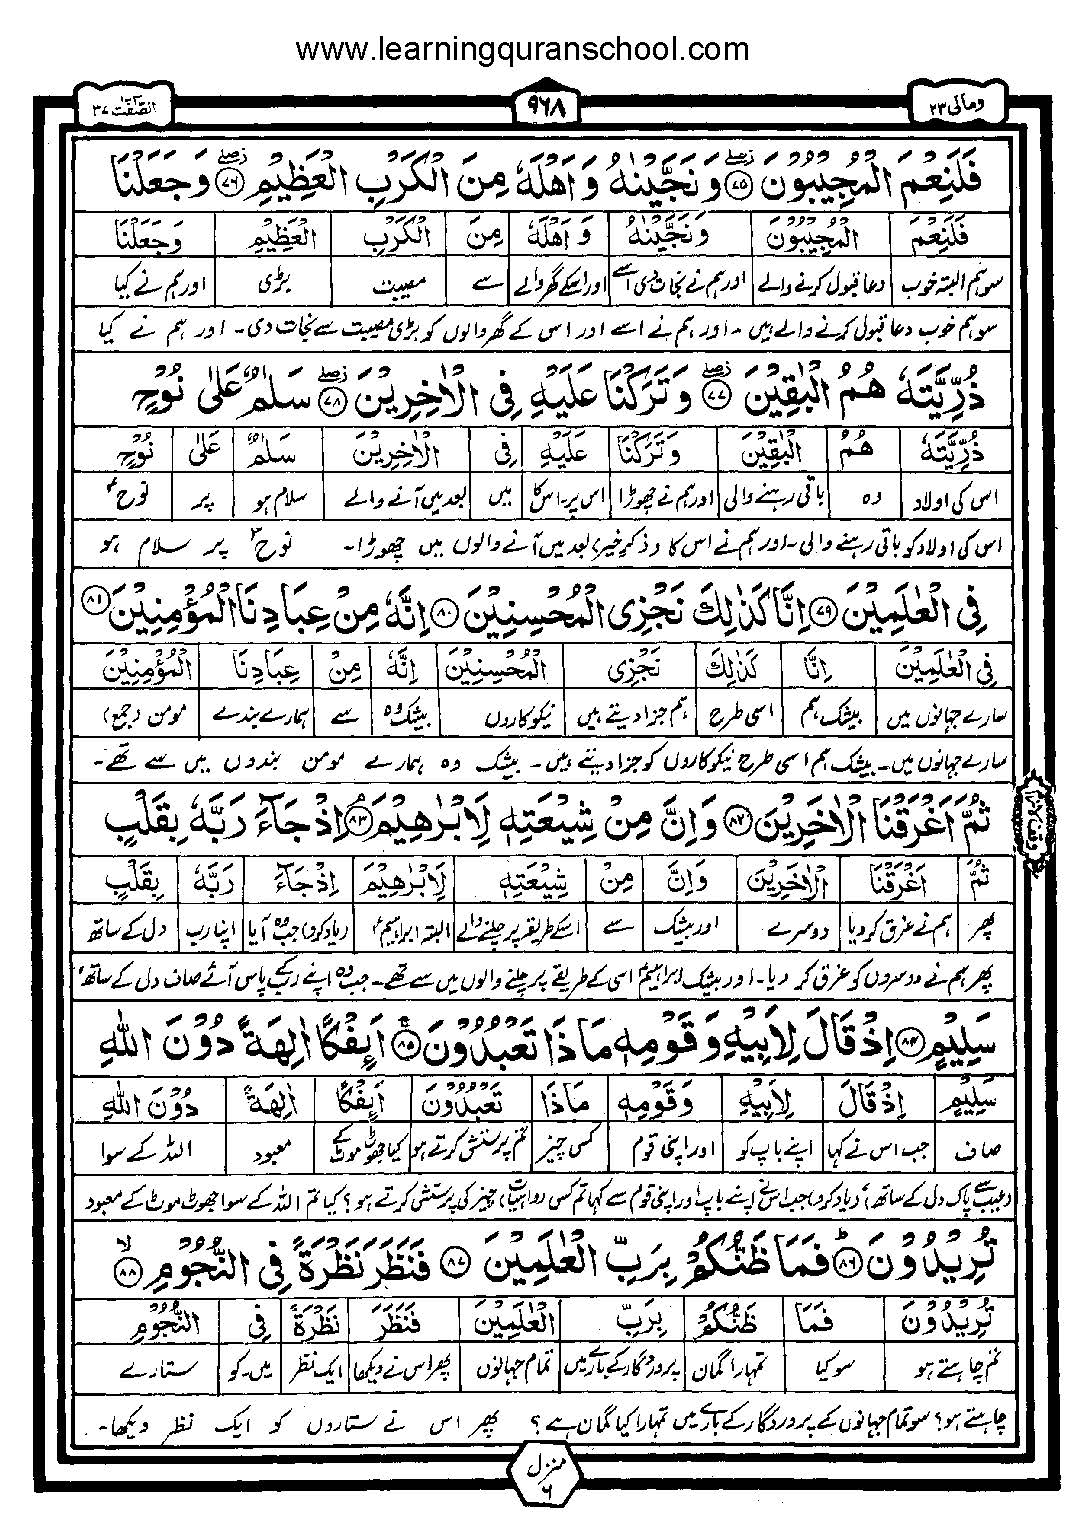 www.learningquranschool.com
ومالی ۲۳
۹۶۸
الصّٰفّٰت ۳۷
فَلَنِعْمَ الْمُجِيْبُوْنَ ﴿۷۵﴾ وَنَجَّيْنٰهُ وَاَهْلَهٗ مِنَ الْكَرْبِ الْعَظِيْمِ ﴿۷۶﴾ وَجَعَلْنَا
فَلَنِعْمَ الْمُجِيْبُوْنَ وَنَجَّيْنٰهُ وَاَهْلَهٗ مِنَ الْكَرْبِ الْعَظِيْمِ وَجَعَلْنَا
سو ہم البتہ خوب دعا قبول کرنے والے اور ہم نے نجات دی اسے اور اسکے گھر والے سے مصیبت بڑی اور ہم نے کیا
سو ہم خوب دعا قبول کرنے والے ہیں۔ اور ہم نے اسے اور اس کے گھر والوں کو بڑی مصیبت سے نجات دی۔ اور ہم نے کیا
ذُرِّيَّتَهٗ هُمُ الْبٰقِيْنَ ﴿۷۷﴾ وَتَرَكْنَا عَلَيْهِ فِى الْاٰخِرِيْنَ ﴿۷۸﴾ سَلٰمٌ عَلٰى نُوْحٍ
ذُرِّيَّتَهٗ هُمُ الْبٰقِيْنَ وَتَرَكْنَا عَلَيْهِ فِى الْاٰخِرِيْنَ سَلٰمٌ عَلٰى نُوْحٍ
اس کی اولاد وہ باقی رہنے والی اور ہم نے چھوڑا اس پر۔اس کا میں بعد میں آنے والے سلام ہو پر نوحؑ
اس کی اولاد کو باقی رہنے والی۔ اور ہم نے اس کا (ذکرِ خیر) بعد میں آنے والوں میں چھوڑا۔ نوحؑ پر سلام ہو
فِى الْعٰلَمِيْنَ ﴿۷۹﴾ اِنَّا كَذٰلِكَ نَجْزِى الْمُحْسِنِيْنَ ﴿۸۰﴾ اِنَّهٗ مِنْ عِبَادِنَا الْمُؤْمِنِيْنَ ﴿۸۱﴾
فِى الْعٰلَمِيْنَ اِنَّا كَذٰلِكَ نَجْزِى الْمُحْسِنِيْنَ اِنَّهٗ مِنْ عِبَادِنَا الْمُؤْمِنِيْنَ
سارے جہانوں میں بیشک ہم اسی طرح ہم جزا دیتے ہیں نیکوکاروں بیشک وہ سے ہمارے بندے مومن (جمع)
سارے جہانوں میں۔ بیشک ہم اسی طرح نیکوکاروں کو جزا دیتے ہیں۔ بیشک وہ ہمارے مومن بندوں میں سے تھے۔
ثُمَّ اَغْرَقْنَا الْاٰخَرِيْنَ ﴿۸۲﴾ وَاِنَّ مِنْ شِيْعَتِهٖ لَاِبْرٰهِيْمَ ﴿۸۳﴾ اِذْ جَآءَ رَبَّهٗ بِقَلْبٍ
ثُمَّ اَغْرَقْنَا الْاٰخَرِيْنَ وَاِنَّ مِنْ شِيْعَتِهٖ لَاِبْرٰهِيْمَ اِذْ جَآءَ رَبَّهٗ بِقَلْبٍ
پھر ہم نے غرق کر دیا دوسرے اور بیشک سے اسکے طریقہ پر چلنے والے البتہ ابراہیمؑ (یاد کرو) جب وہ آیا اپنا رب دل کے ساتھ
پھر ہم نے دوسروں کو غرق کر دیا۔ اور بیشک ابراہیمؑ اسی کے طریقے پر چلنے والوں میں سے تھے۔ جب وہ اپنے رب کے پاس آئے صاف دل کے ساتھ
سَلِيْمٍ ﴿۸۴﴾ اِذْ قَالَ لِاَبِيْهِ وَقَوْمِهٖ مَاذَا تَعْبُدُوْنَ ﴿۸۵﴾ اَئِفْكًا اٰلِهَةً دُوْنَ اللّٰهِ
سَلِيْمٍ اِذْ قَالَ لِاَبِيْهِ وَقَوْمِهٖ مَاذَا تَعْبُدُوْنَ اَئِفْكًا اٰلِهَةً دُوْنَ اللّٰهِ
صاف جب اس نے کہا اپنے باپ کو اور اپنی قوم کس چیز تم پرستش کرتے ہو کیا جھوٹ موٹ کے معبود اللہ کے سوا
(عیب سے پاک دل کے ساتھ) (یاد کرو) جب اس نے اپنے باپ اور اپنی قوم سے کہا تم کس (واہیات) چیز کی پرستش کرتے ہو؟ کیا تم اللہ کے سوا جھوٹ موٹ کے معبود
تُرِيْدُوْنَ ﴿۸۶﴾ فَمَا ظَنُّكُمْ بِرَبِّ الْعٰلَمِيْنَ ﴿۸۷﴾ فَنَظَرَ نَظْرَةً فِى النُّجُوْمِ ﴿۸۸﴾
تُرِيْدُوْنَ فَمَا ظَنُّكُمْ بِرَبِّ الْعٰلَمِيْنَ فَنَظَرَ نَظْرَةً فِى النُّجُوْمِ
تم چاہتے ہو سو کیا تمہارا گمان پروردگار کے بارے میں تمام جہانوں پھر اس نے دیکھا ایک نظر میں۔کو ستارے
چاہتے ہو؟ سو تمام جہانوں کے پروردگار کے بارے میں تمہارا کیا گمان ہے؟ پھر اس نے ستاروں کو ایک نظر دیکھا۔
منزل ۶